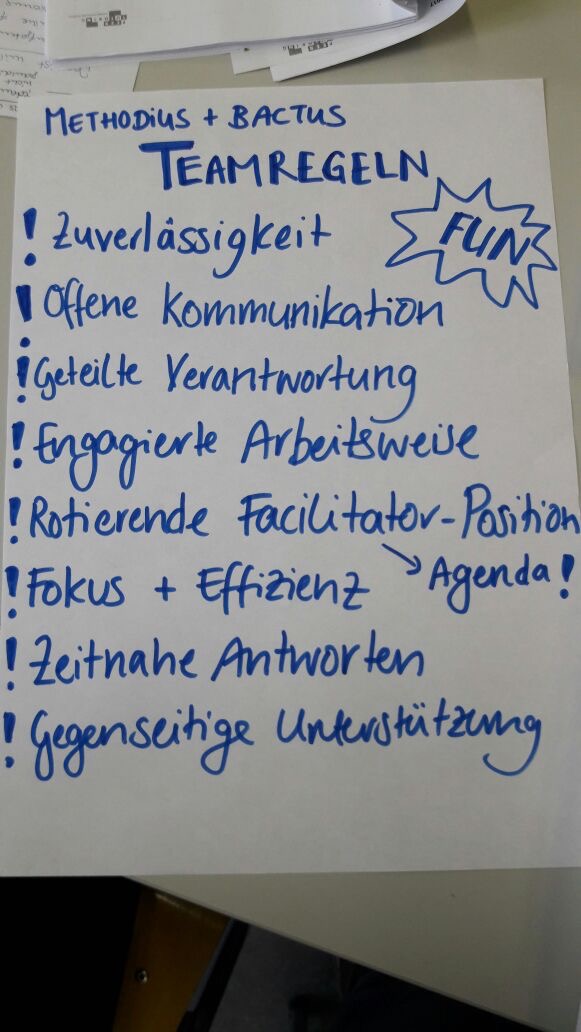 METHODIUS + BACTUS
TEAMREGELN
FUN
! Zuverlässigkeit
! Offene Kommunikation
! Geteilte Verantwortung
! Engagierte Arbeitsweise
! Rotierende Facilitator-Position
→ Agenda!
! Fokus + Effizienz
! Zeitnahe Antworten
! Gegenseitige Unterstützung